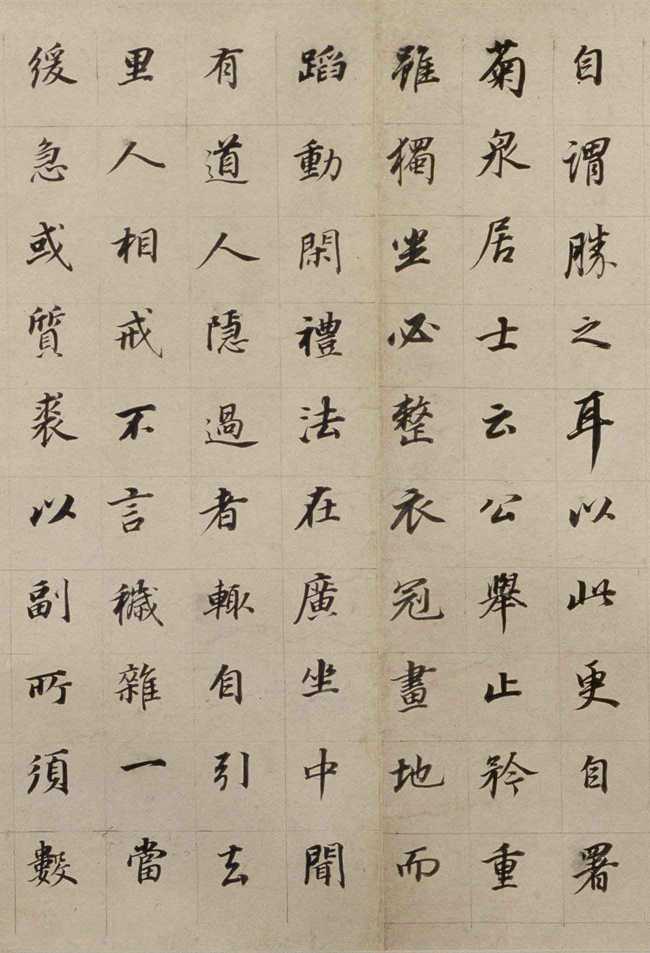 自謂勝之耳以此更自署
菊泉居士云公舉止矜重
雖獨坐必整衣冠畫地而
蹈動閑禮法在廣坐中聞
有道人隱過者輒自引去
里人相戒不言穢雜一當
緩急或質裘以副所須數